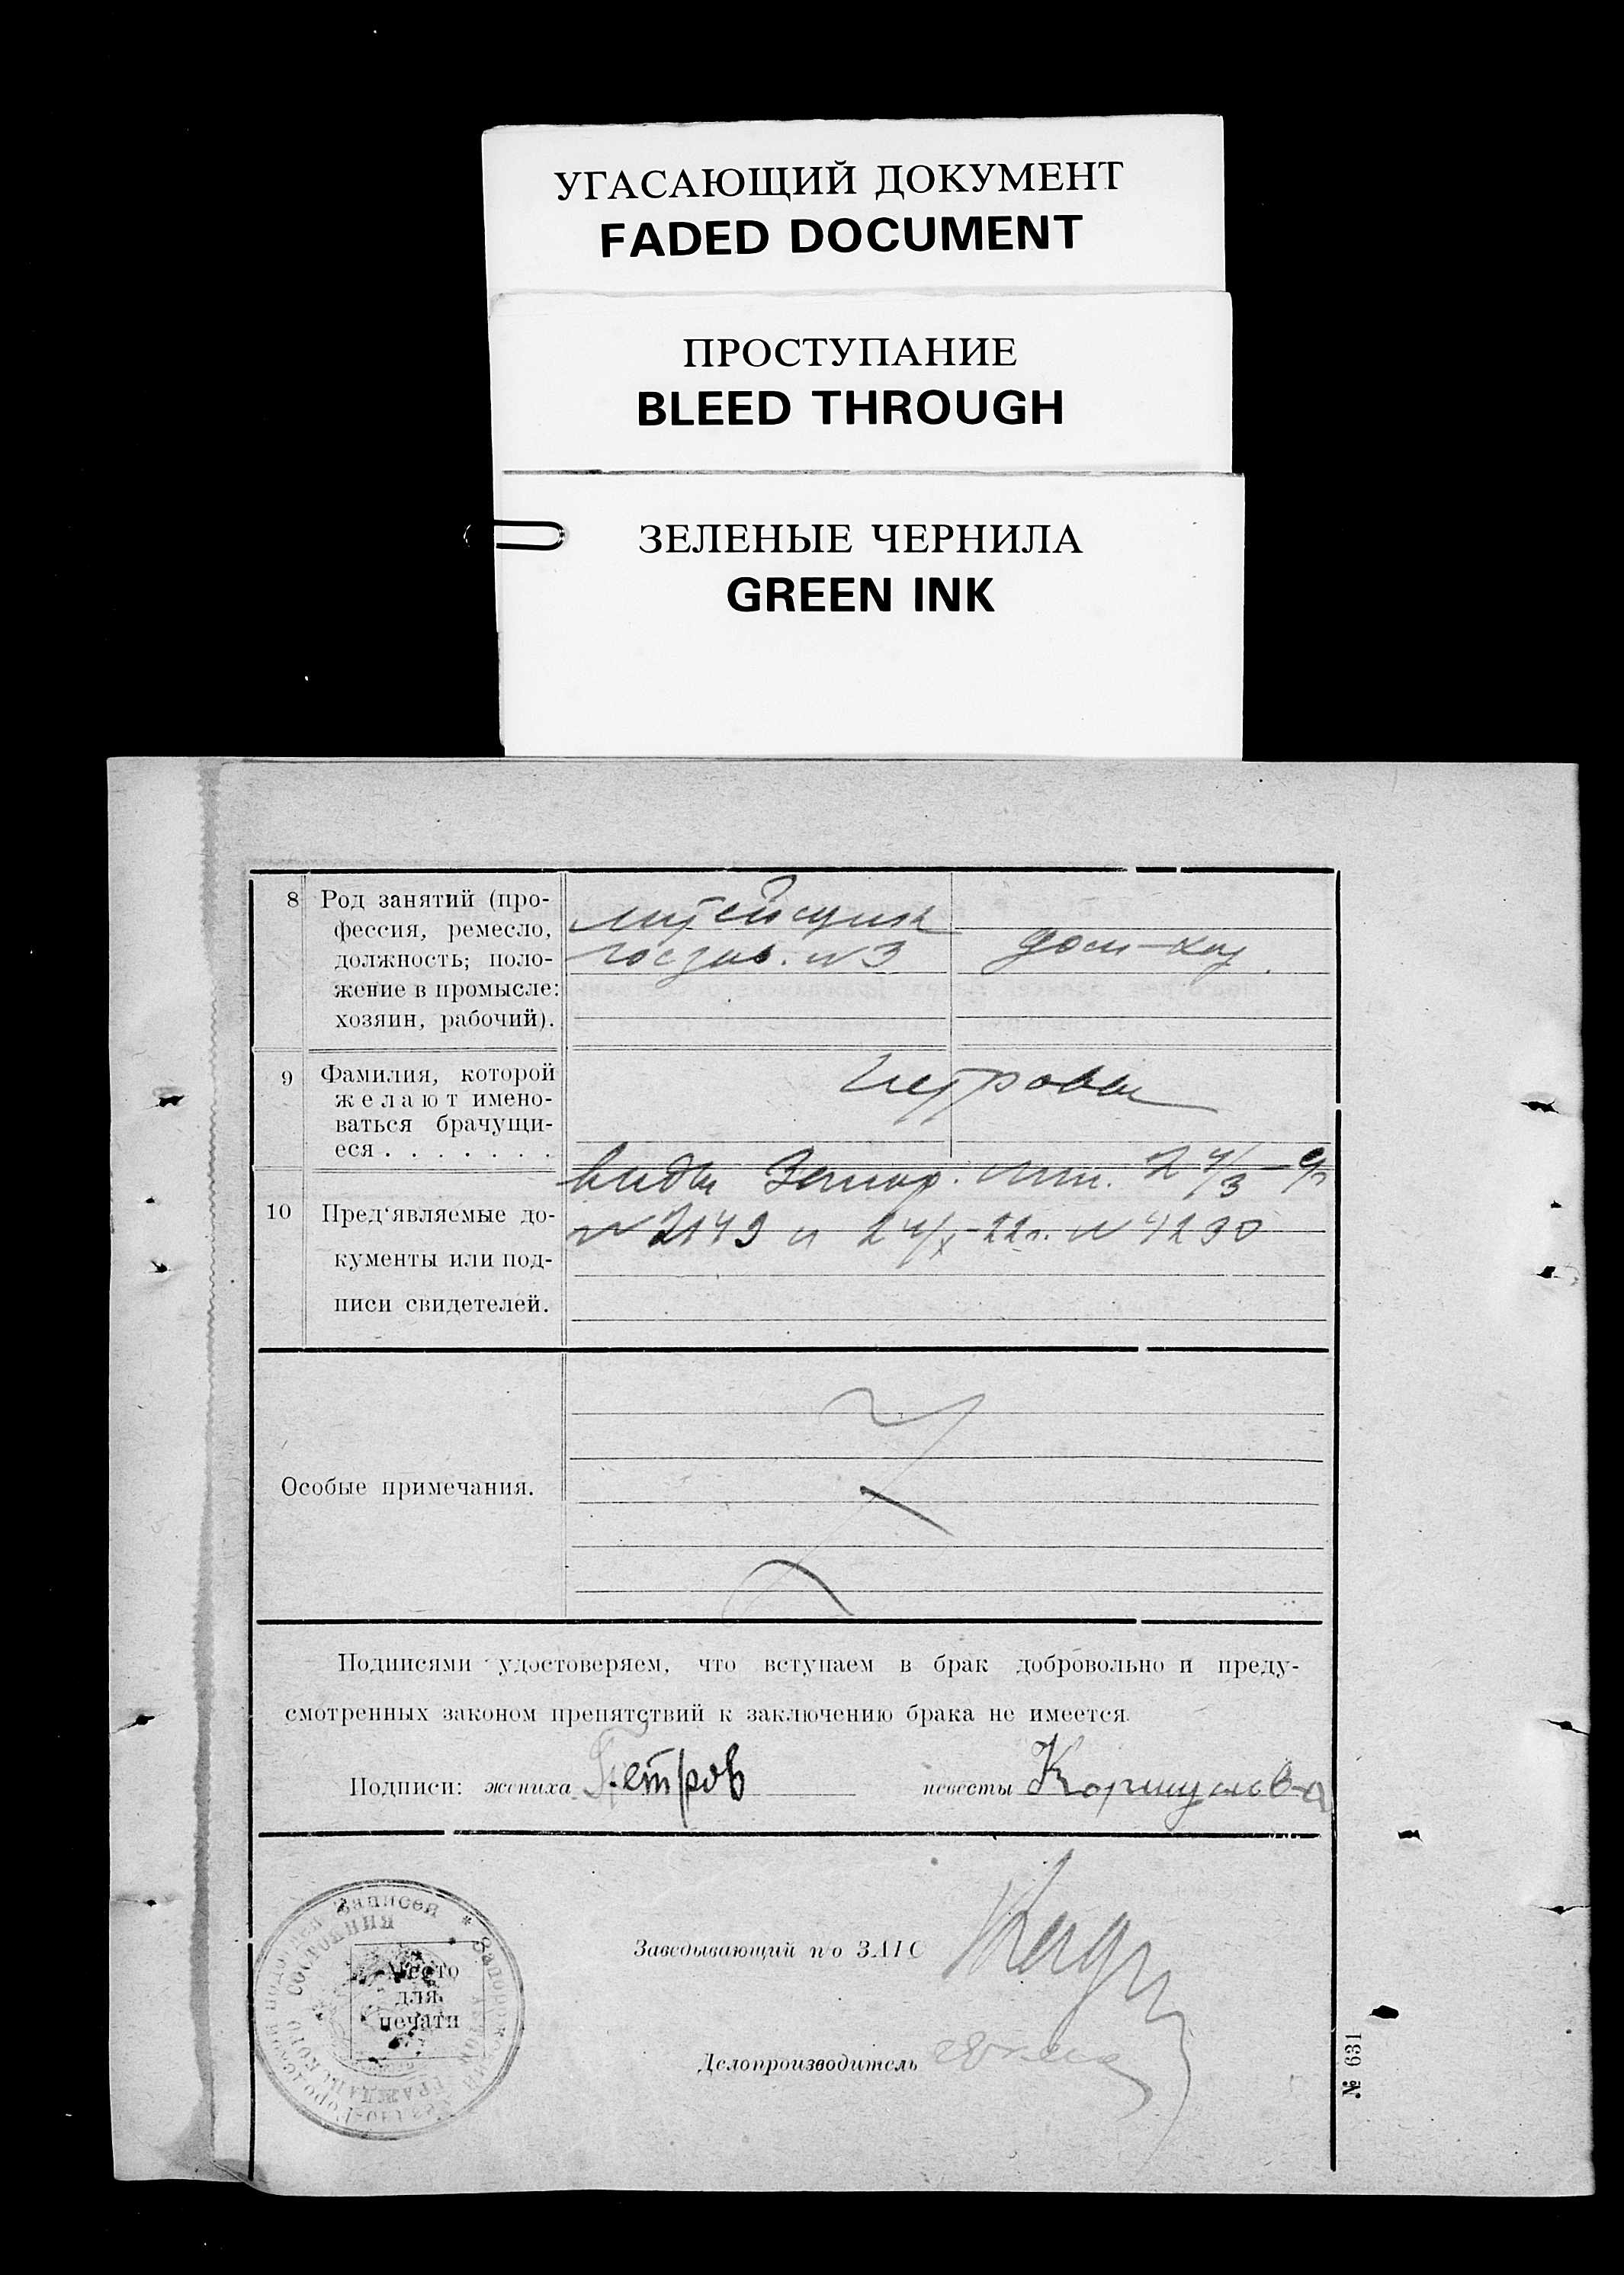 УГАСАЮЩИЙ ДОКУМЕНТ
FADED DOCUMENT
ПРОСТУПАНИЕ
BLEED THROUGH
ЗЕЛЕНЫЕ ЧЕРНИЛА
GREEN INK
8 Род занятий (про-
фессия, ремесло,
должность; поло-
жение в промысле:
хозяин, рабочий).
литейщик
госзав. № 3
дом-хоз.
9 Фамилия, которой
желают имено-
ваться брачущи-
еся . . . . . . .
Петровы
10 Пред‘являемые до-
кументы или под-
писи свидетелей.
виды Запор.
№ 2149 и 24/X-22г. № 4290
Особые примечания.
Подписями удостоверяем, что вступаем в брак добровольно и преду-
смотренных законом препятствий к заключению брака не имеется.
Подписи: жениха Петров невесты Коршунова
Заведывающий п/о ЗАГС
Делопроизводитель
Место
для
печати
№ 631